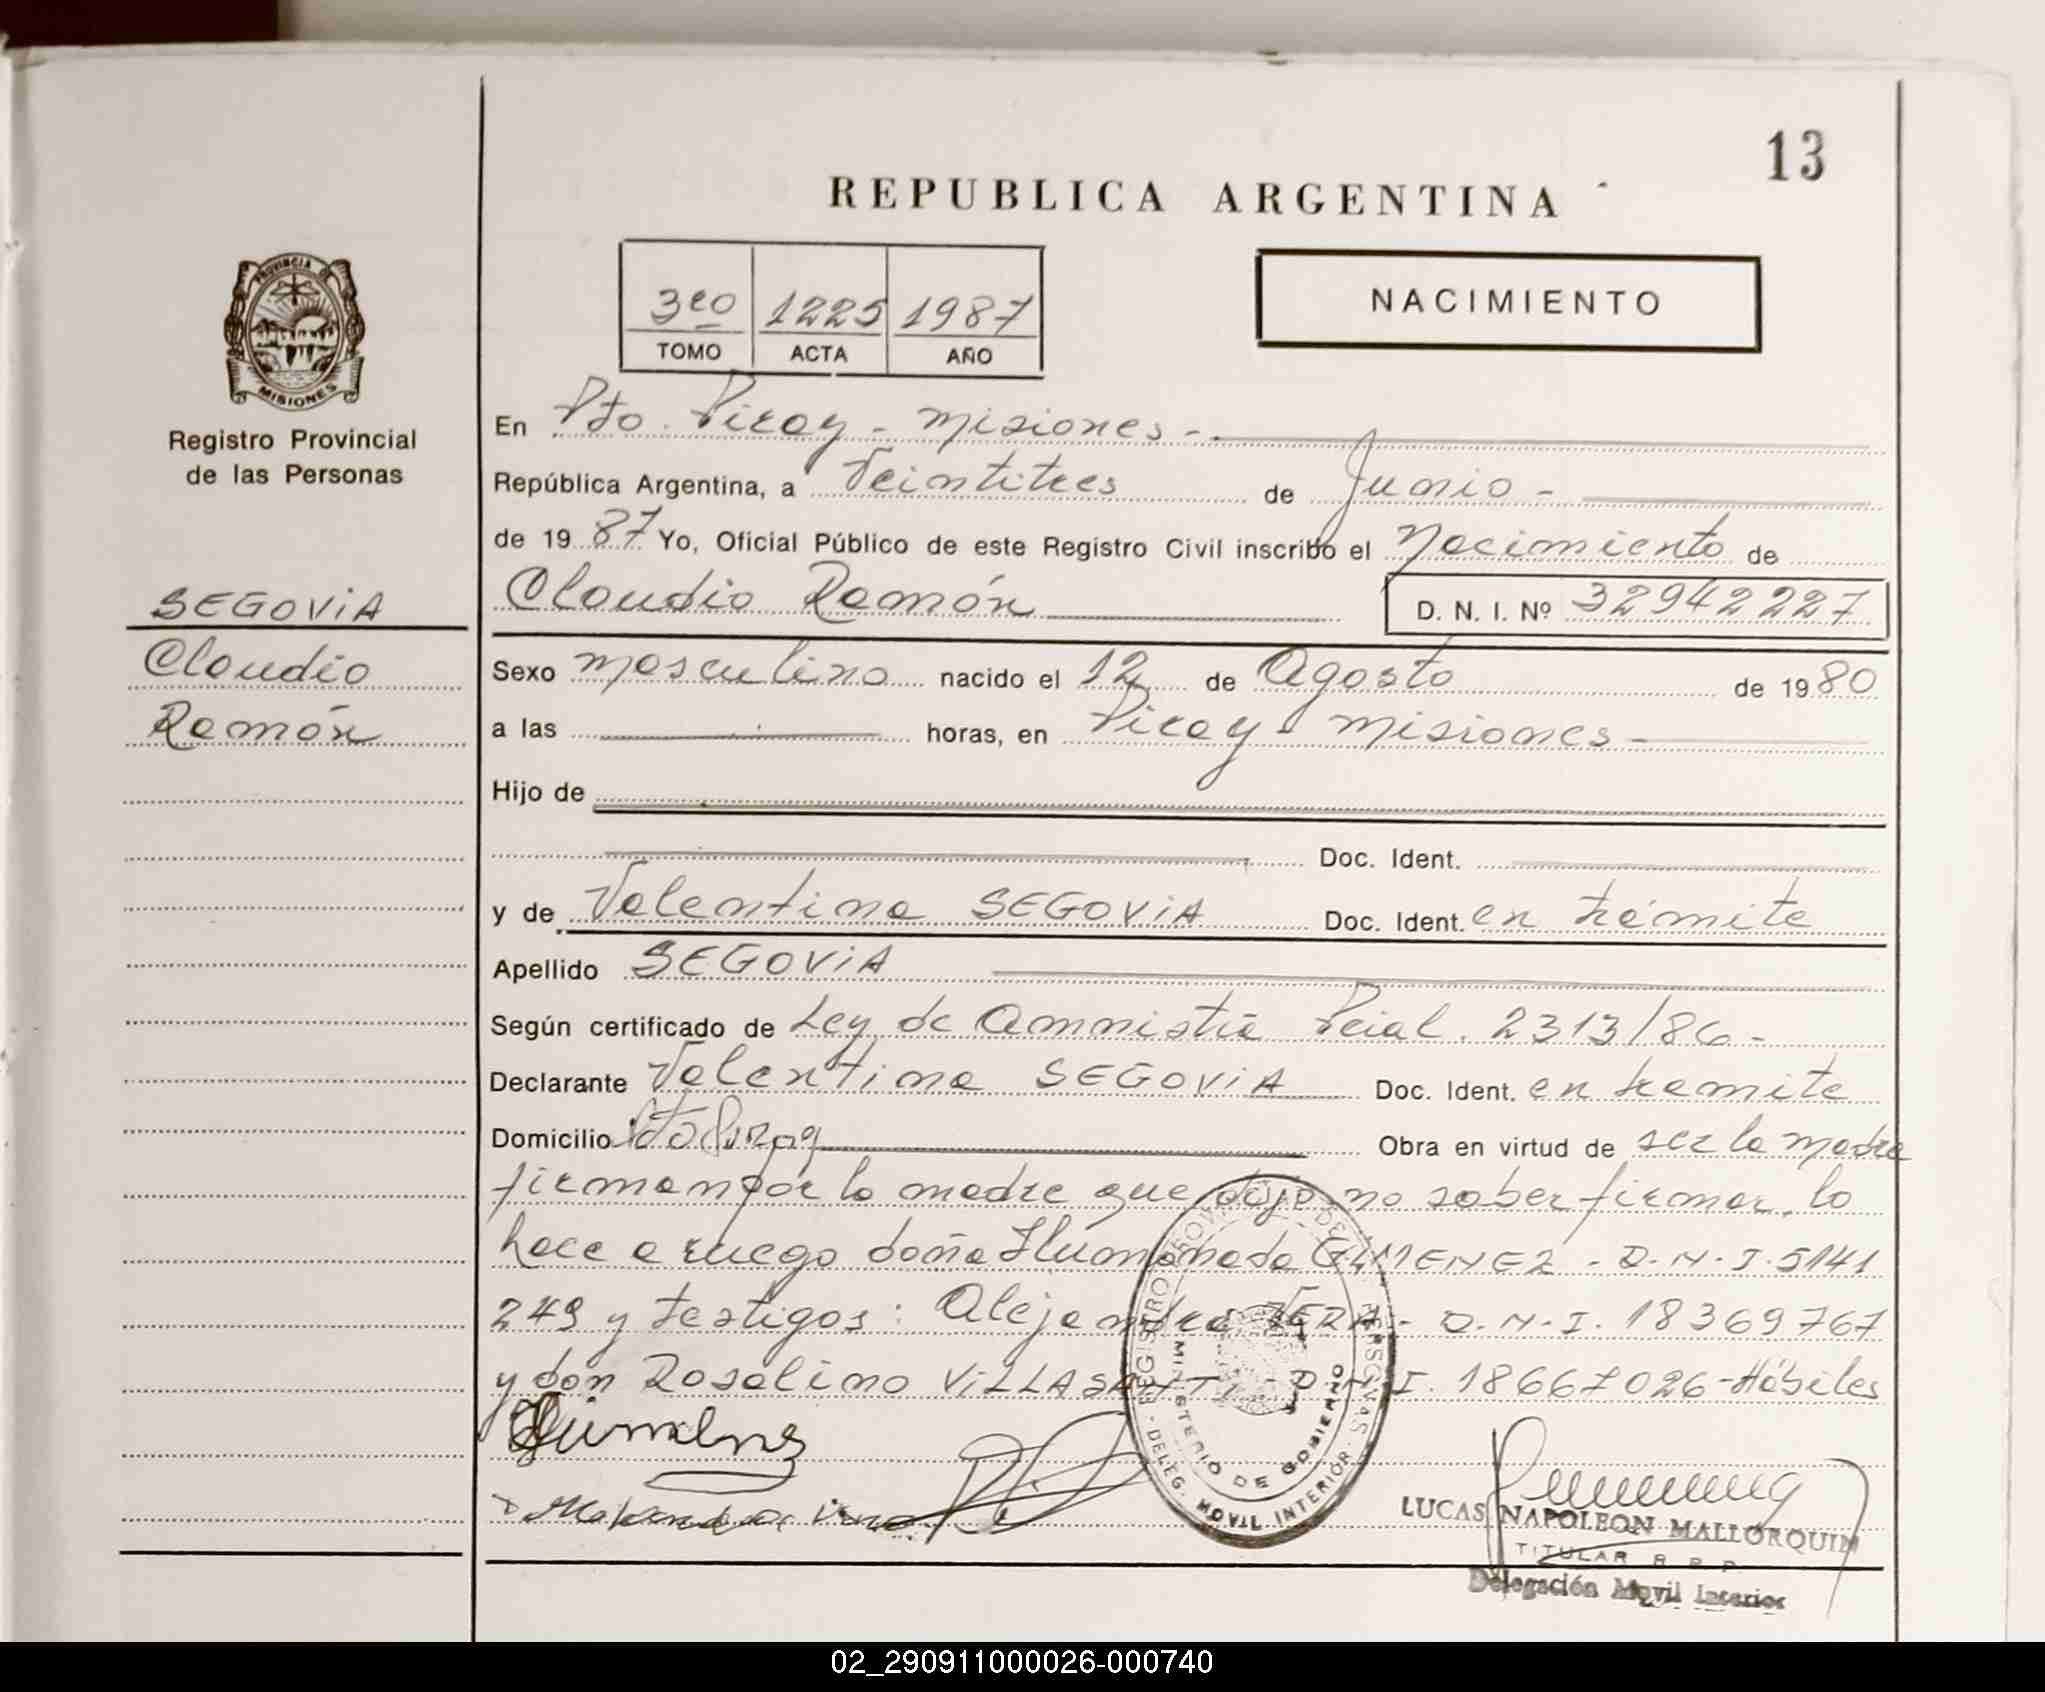 13
REPUBLICA ARGENTINA
3ro 1225 1987
TOMO ACTA AÑO
NACIMIENTO
PROVINCIA DE
MISIONES
Registro Provincial
de las Personas
SEGOVIA
Claudio
Ramón
En Pto. Piray - Misiones -
República Argentina, a Veintitres de Junio -
de 19 87 Yo, Oficial Público de este Registro Civil inscribo el Nacimiento de
Claudio Ramón D. N. I. Nº 32942227
Sexo masculino nacido el 12 de Agosto de 19 80
a las horas, en Piray - Misiones -
Hijo de
Doc. Ident.
y de Valentina SEGOVIA Doc. Ident. en trámite
Apellido SEGOVIA
Según certificado de Ley de Amnistia Pcial. 2313/86 -
Declarante Valentina SEGOVIA Doc. Ident. en tramite
Domicilio Pto Piray Obra en virtud de ser la madre
firman por la madre que dijo no saber firmar, lo
hace a ruego doña Iluminada GIMENEZ - D.N.I. 5141
249 y testigos: Alejandra VERA - D.N.I. 18369767
y don Rosalino VILLASANTI - D.N.I. 18667026 - Hábiles
REGISTRO PROVINCIAL DE LAS PERSONAS
MINISTERIO DE GOBIERNO
DELEG. MOVIL INTERIOR
LUCAS NAPOLEON MALLORQUIN
TITULAR R. P. P.
Delegación Movil Interior
02_290911000026-000740